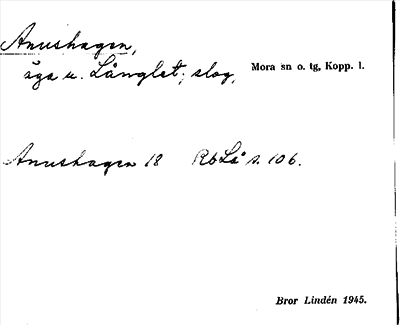 Anushagen,
äga u. Långlet; slog,
Mora sn o. tg, Kopp. l.
Anushagen 18 RbLå s. 106.
Bror Lindén 1945.